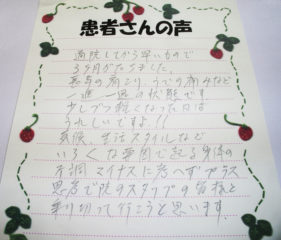 患者さんの声
通院してから早いもので
3ヶ月がたちました。
首肩の痛こり、うでの痛みなど
一進一退の状態です
少しづつ軽くなった日は
うれしいですよ!!
気候、生活スタイルなど
いろんな要因で起る身体の
不調 マイナスに考へずプラス
思考で院のスタッフの皆様と
乗り切って行こうと思います。